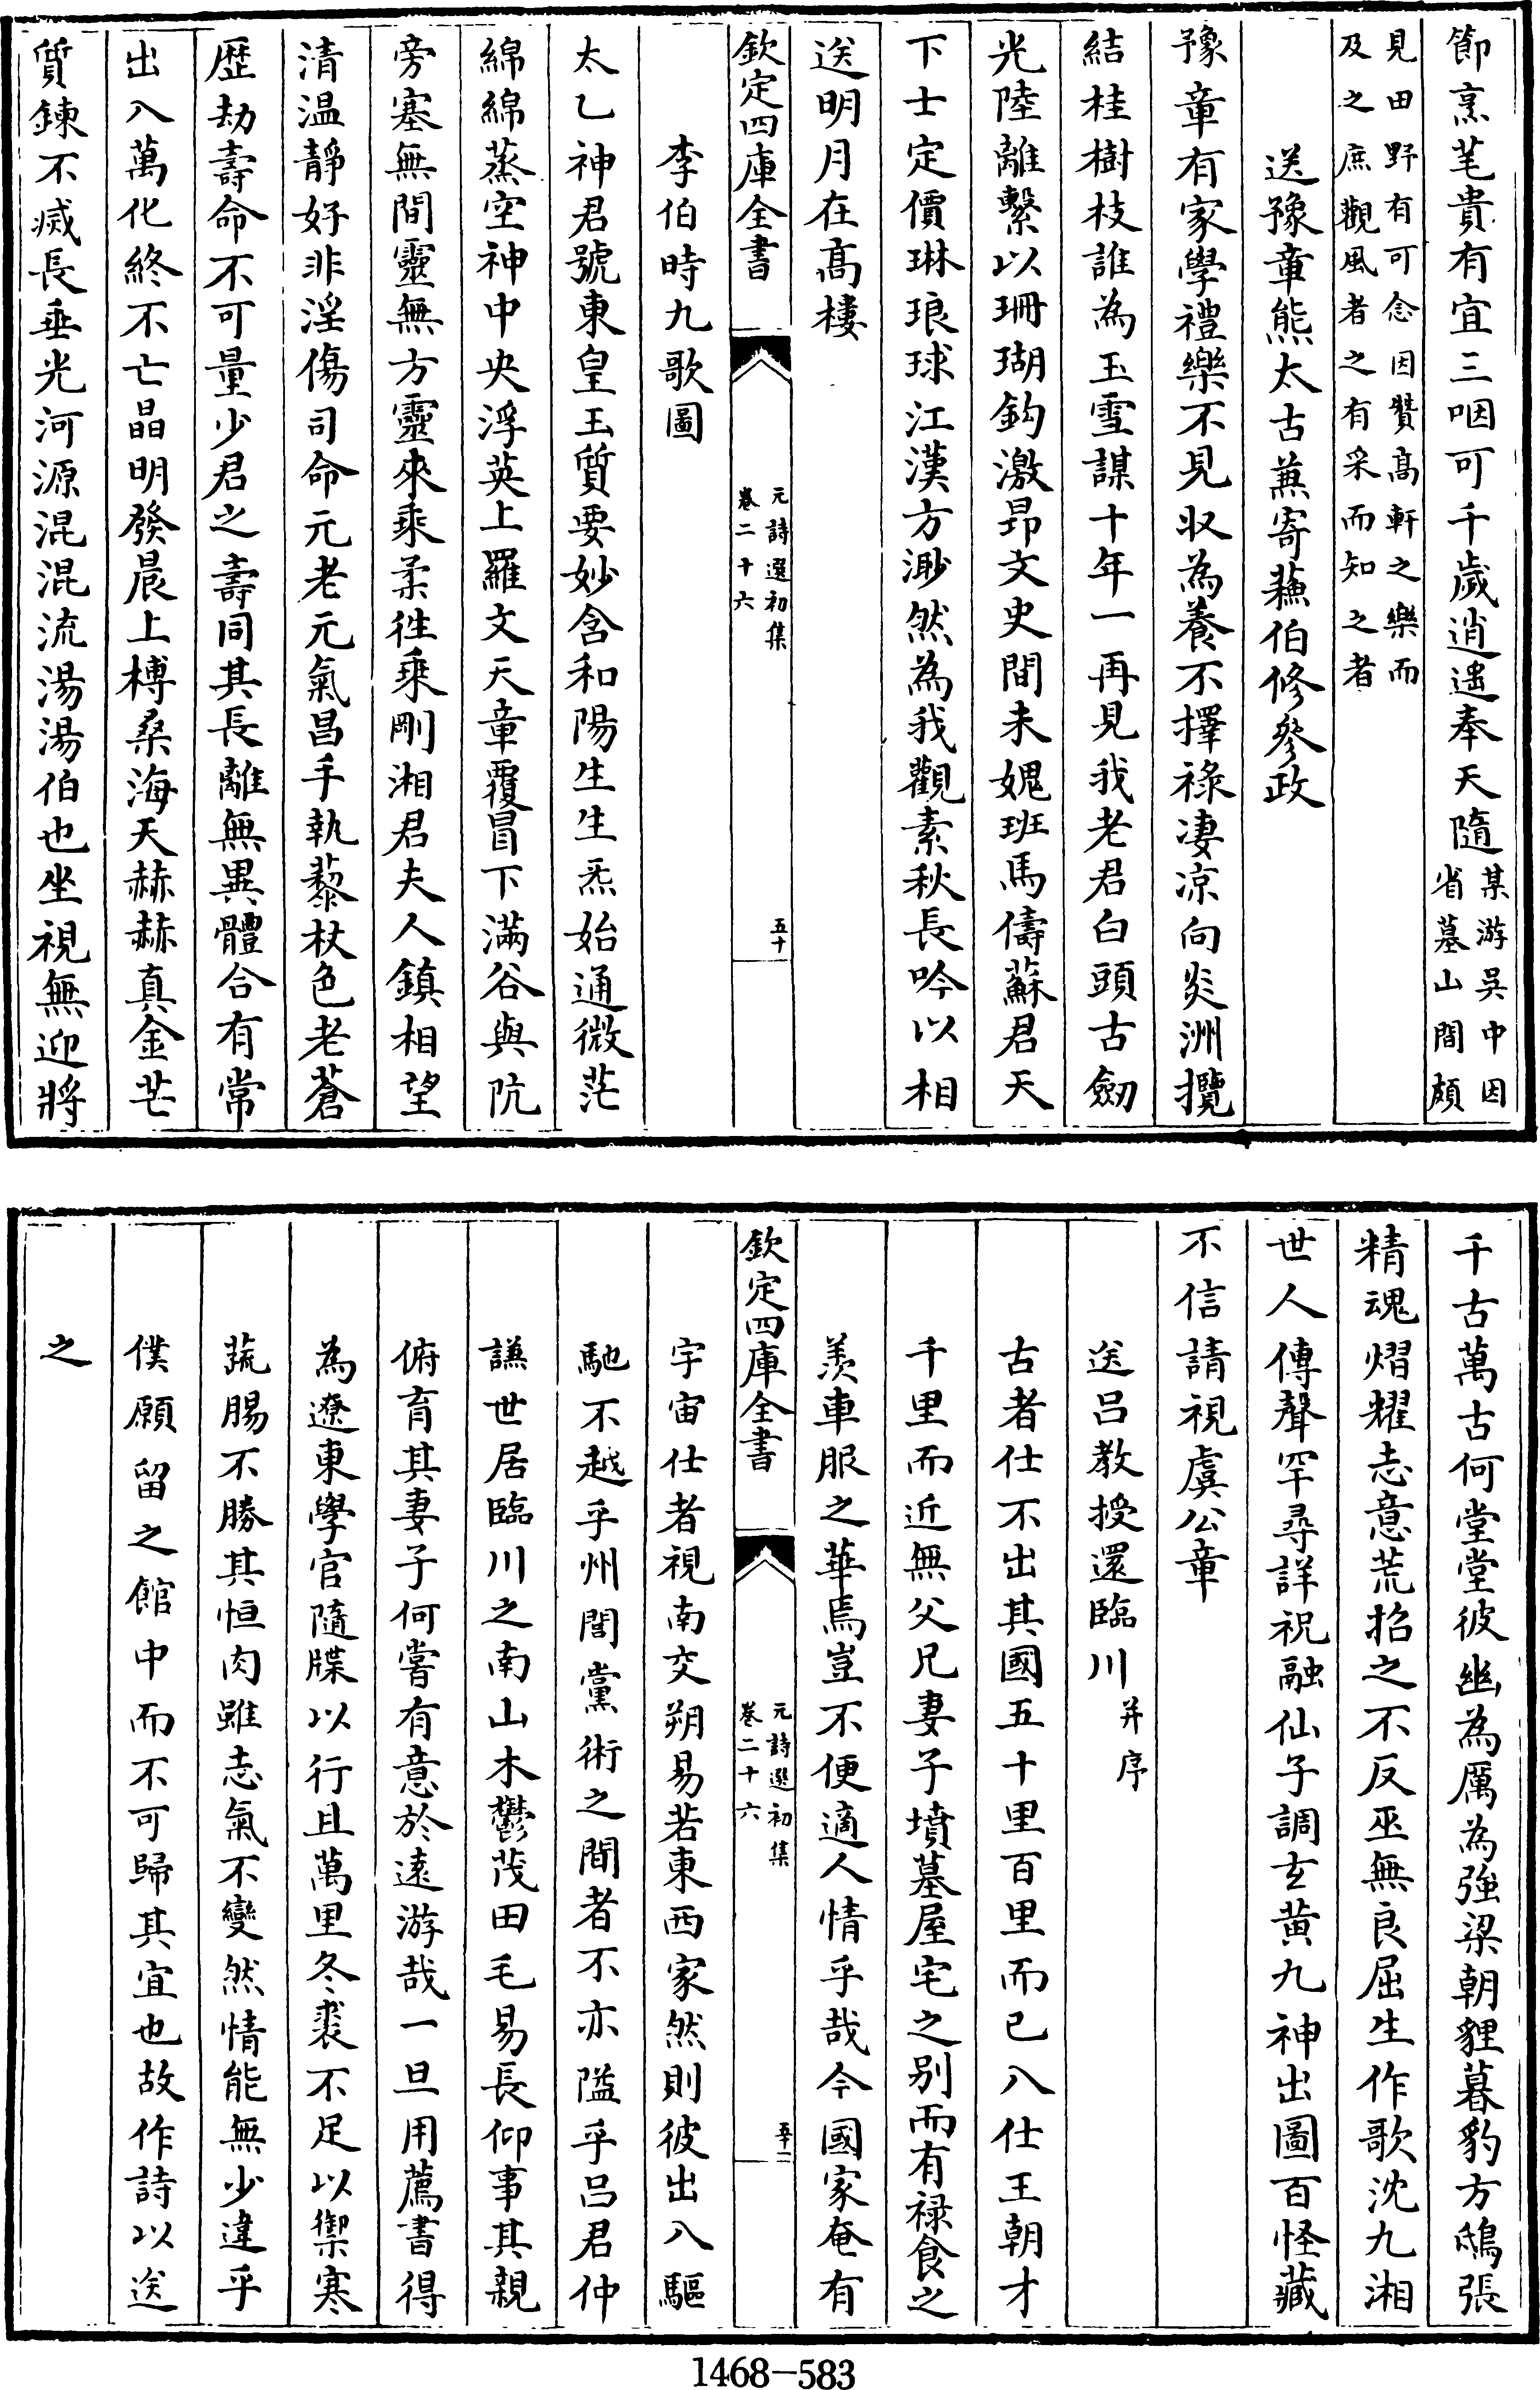 節烹芼貴有宜三咽可千歲逍遙奉天隨某游吳中因省墓山間頗
見田野有可念因贊高軒之樂而
及之庶觀風者之有采而知之者
送豫章熊太古兼寄蘓伯修參政
豫章有家學禮樂不見収為養不擇祿凄凉向炎洲攬
結桂樹枝誰為玉雪謀十年一再見我老君白頭古劒
光陸離繫以珊瑚鈎激昻文史間未媿班馬儔蘇君天
下士定價琳琅球江漢方渺然為我觀素秋長吟以相
送明月在髙樓
欽定四庫全書
元詩選初集
卷二十六
五十
李伯時九歌圖
太乙神君號東皇玉質要妙含和陽生生炁始通微茫
綿綿蒸空神中央浮英上羅文天章覆冒下滿谷與阬
旁塞無間靈無方靈來乘柔徃乘剛湘君夫人鎮相望
清温靜好非淫傷司命元老元氣昌手執藜杖色老蒼
歴劫壽命不可量少君之壽同其長離無異體合有常
出入萬化終不亡晶明發晨上榑桑海天赫赫真金芒
質鍊不㓕長垂光河源混混流湯湯伯也坐視無迎將
千古萬古何堂堂彼幽為厲為強梁朝貍暮豹方鴟張
精魂熠耀志意荒招之不反巫無良屈生作歌沈九湘
世人傳聲罕尋詳祝融仙子調玄黄九神出圖百怪藏
不信請視虞公章
送呂教授還臨川并序
古者仕不出其國五十里百里而已入仕王朝才
千里而近無父兄妻子墳墓屋宅之別而有禄食之
羨車服之華焉豈不便適人情乎哉今國家奄有
欽定四庫全書
元詩選初集
卷二十六
五十一
宇宙仕者視南交朔易若東西家然則彼出入驅
馳不越乎州閭黨術之間者不亦隘乎呂君仲
謙世居臨川之南山木鬱茂田毛易長仰事其親
俯育其妻子何嘗有意於遠游哉一旦用薦書得
為遼東學官隨牒以行且萬里冬裘不足以禦寒
蔬腸不勝其恒肉雖志氣不變然情能無少違乎
僕願留之館中而不可歸其宜也故作詩以送
之
1468-583